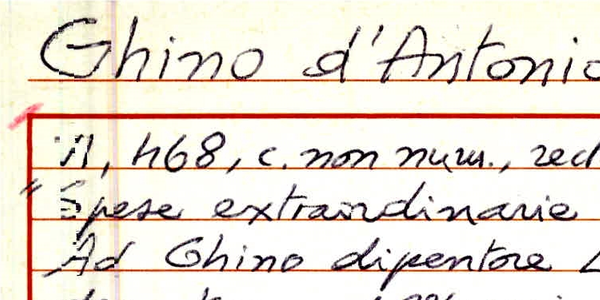 Ghino d'Antonio
A, 468, c. non num., red
Spese extraordinarie
Ad Ghino dipentore